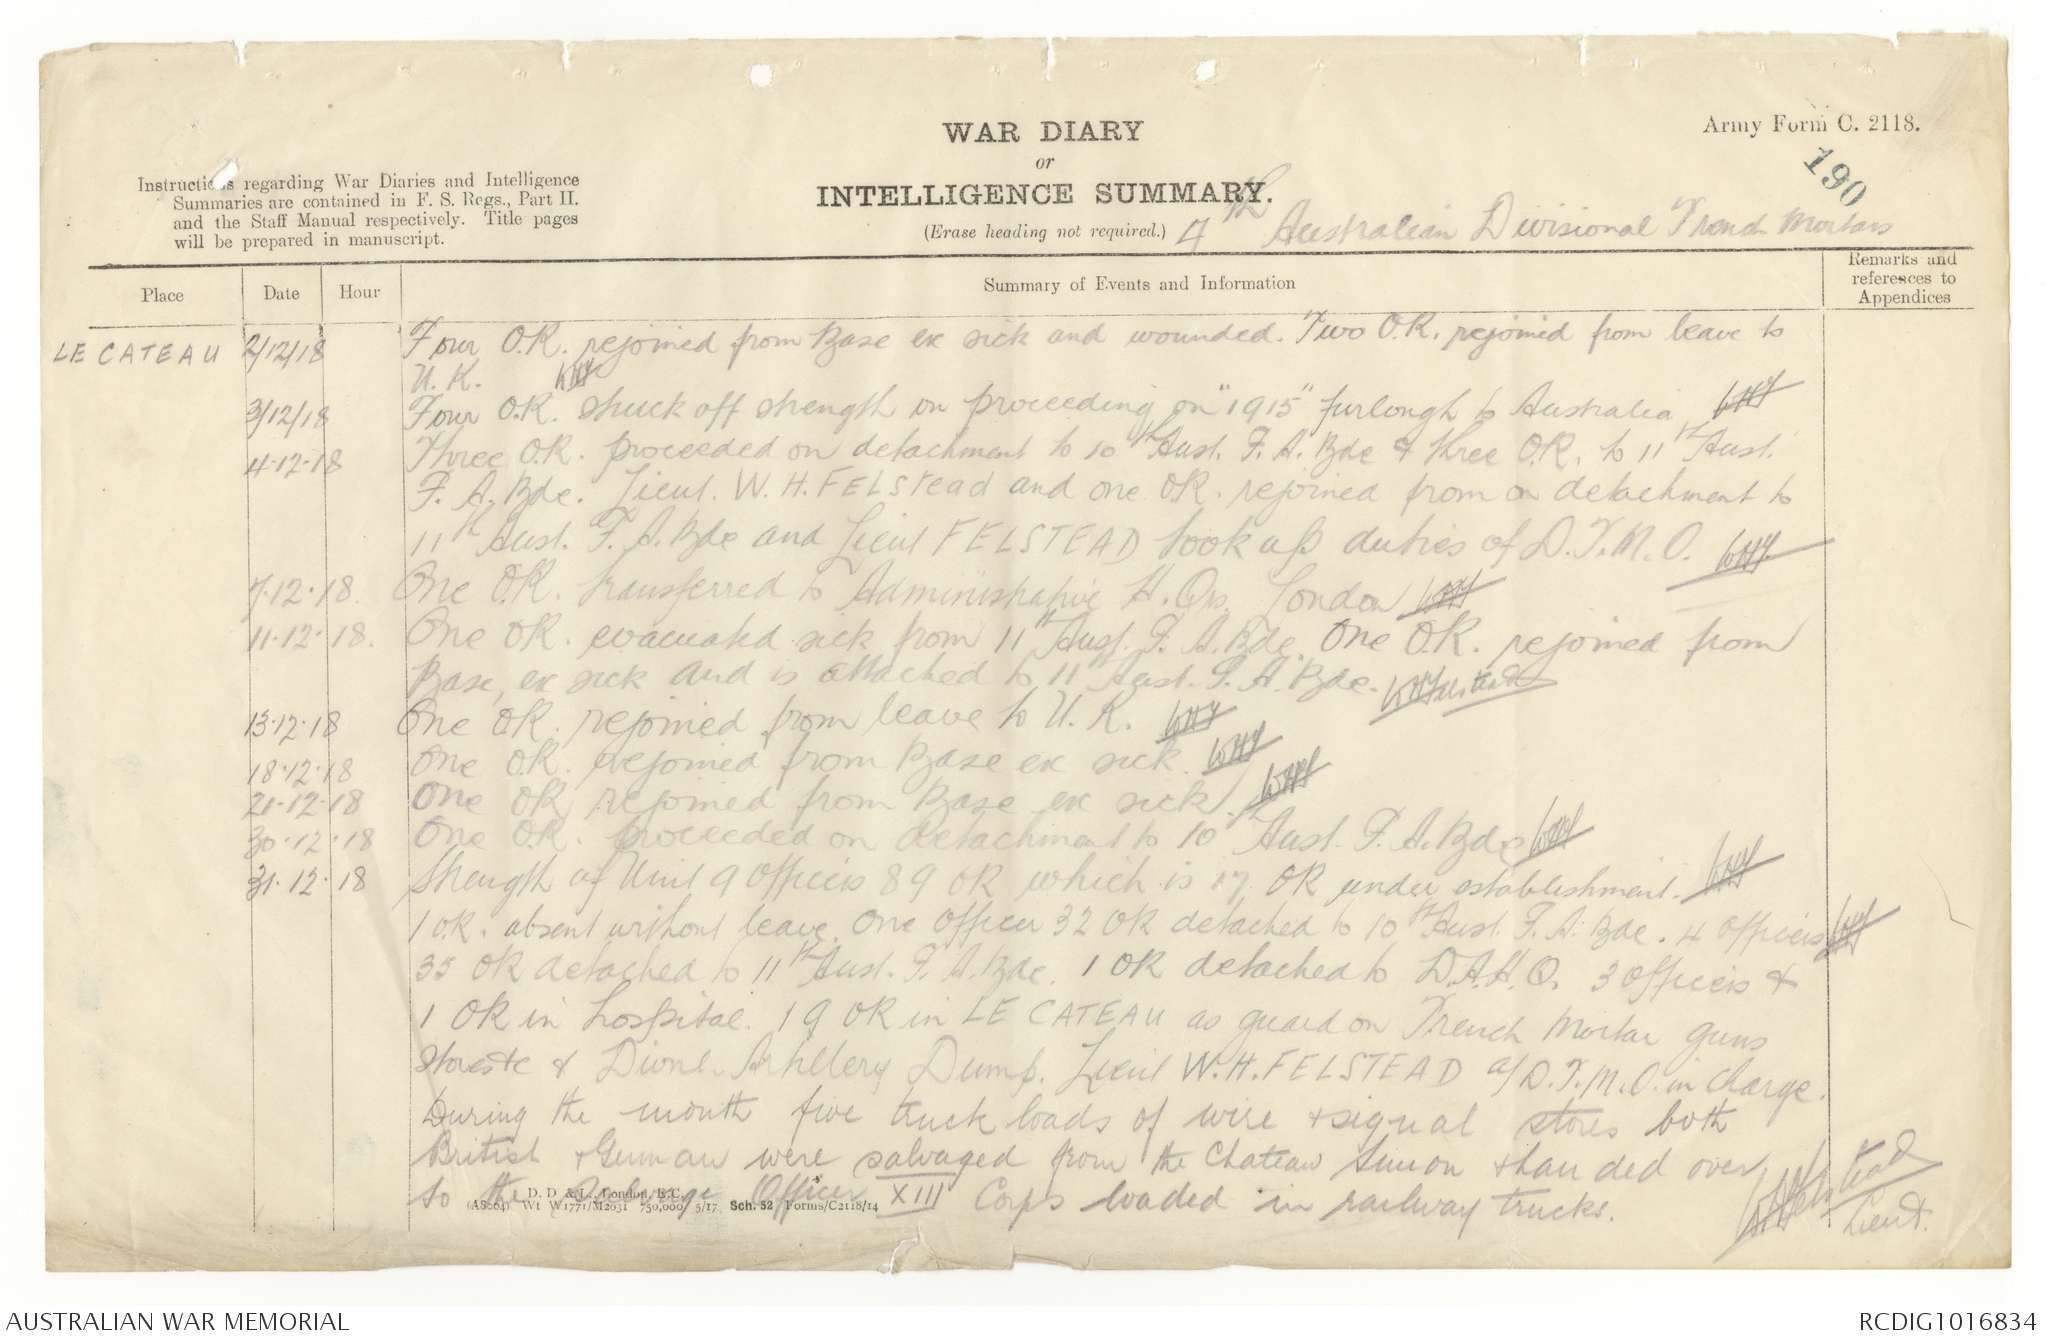 WAR DIARY
or
INTELLIGENCE SUMMARY.
(Erase heading not required.)
Army Form C. 2118.
190
Instructions regarding War Diaries and Intelligence
Summaries are contained in F. S. Regs., Part II.
and the Staff Manual respectively. Title pages
will be prepared in manuscript.
4th Australian Divisional Trench Mortars
Place
Date
Hour
Summary of Events and Information
Remarks and
references to
Appendices
LE CATEAU 2/12/18 Four O.R. rejoined from Base ex sick and wounded. Two O.R. rejoined from leave to
U.K. WHF
3/12/18 Four O.R. struck off strength on proceeding on "1915" furlough to Australia WHF
4.12.18 Three O.R. proceeded on detachment to 10th Aust. F. A. Bde & three O.R. to 11th Aust.
F. A. Bde. Lieut. W. H. FELSTead and one OR. rejoined from on detachment to
11th Aust. F. A. Bde and Lieut FELSTEAD took up duties of D.T.M.O. WHF
7.12.18. One OR. transferred to Administrative H.Qrs. London WHF
11.12.18. One OR. evacuated sick from 11th Aust. F. A. Bde. One OR. rejoined from
Base, ex sick and is attached to 11 Aust. F. A. Bde. WHFelstead
13.12.18 One OR. rejoined from leave to U. K. WHF
18.12.18 One OR. rejoined from Base ex sick. WHF
21.12.18 One OR rejoined from Base ex sick. WHF
30.12.18 One OR. proceeded on detachment to 10th Aust. F. A. Bde WHF
31.12.18 Strength of Unit 9 officers 89 OR which is 17 OR under establishment. WHF
1 O.R. absent without leave. One officer 32 OR detached to 10th Aust. F. A. Bde. 4 officers WHF
35 OR detached to 11th Aust. F. A. Bde. 1 OR detached to D.A.H.Q. 3 officers &
1 OR in hospital. 19 OR in LE CATEAU as guard on Trench Mortar guns
stores etc & Dional Artillery Dump. Lieut W.H. FELSTEAD a/D.T.M.O. in charge.
During the month five truck loads of wire & signal stores both
British & German were salvaged from the Chateau Simon & handed over
to the Salvage Officer XIII Corps loaded in railway trucks.
WHFelstead
Lieut.
D. D. & L., London, E.C.
(A8004) Wt W1771/M2031 750,000 5/17 Sch. 52 Forms/C2118/14
AUSTRALIAN WAR MEMORIAL
RCDIG1016834